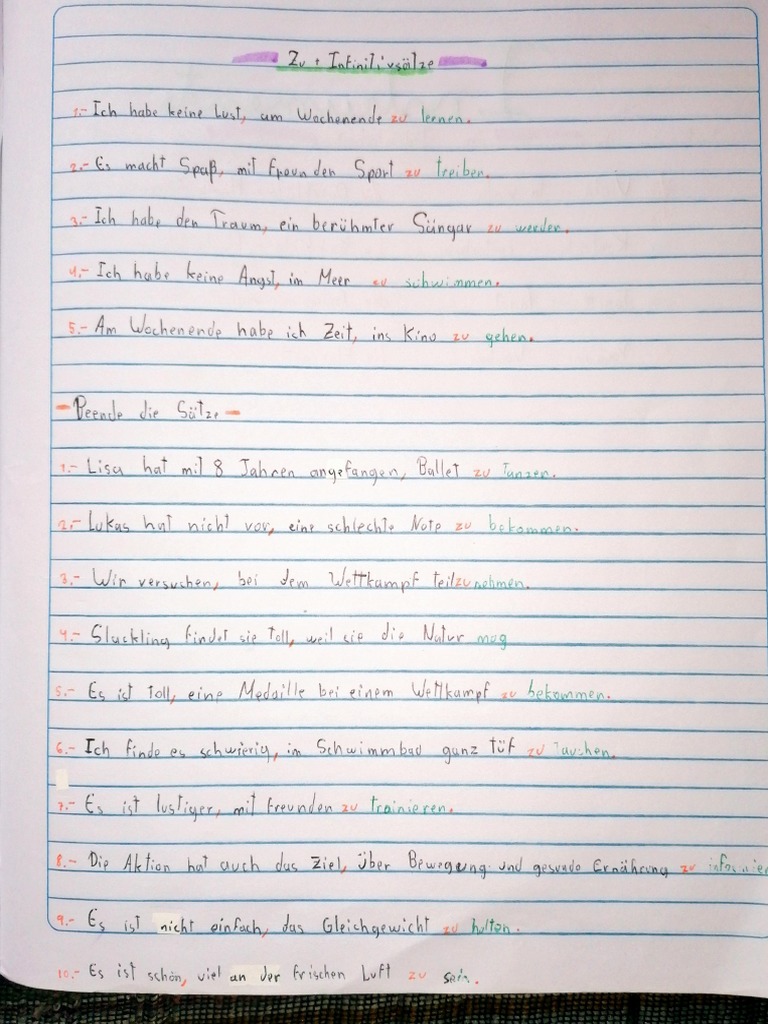 Zu + Infinitivsätze
1.- Ich habe keine Lust, am Wochenende zu lernen.
2.- Es macht Spaß, mit Freunden Sport zu treiben.
3.- Ich habe den Traum, ein berühmter Süngar zu werden.
4.- Ich habe keine Angst, im Meer zu schwimmen.
5.- Am Wochenende habe ich Zeit, ins Kino zu gehen.
- Beende die Sätze -
1.- Lisa hat mit 8 Jahren angefangen, Ballet zu Tanzen.
2.- Lukas hat nicht vor, eine schlechte Note zu bekommen.
3.- Wir versuchen, bei dem Wettkampf teilzunehmen.
4.- Slackling findet sie toll, weil sie die Natur mag
5.- Es ist toll, eine Medaille bei einem Wettkampf zu bekommen.
6.- Ich finde es schwierig, im Schwimmbad ganz tüf zu Tauchen.
7.- Es ist lustiger, mit Freunden zu trainieren.
8.- Die Aktion hat auch das Ziel, über Bewegung und gesunde Ernährung zu
9.- Es ist nicht einfach, das Gleichgewicht zu halten.
10.- Es ist schön, viel an der frischen Luft zu sein.